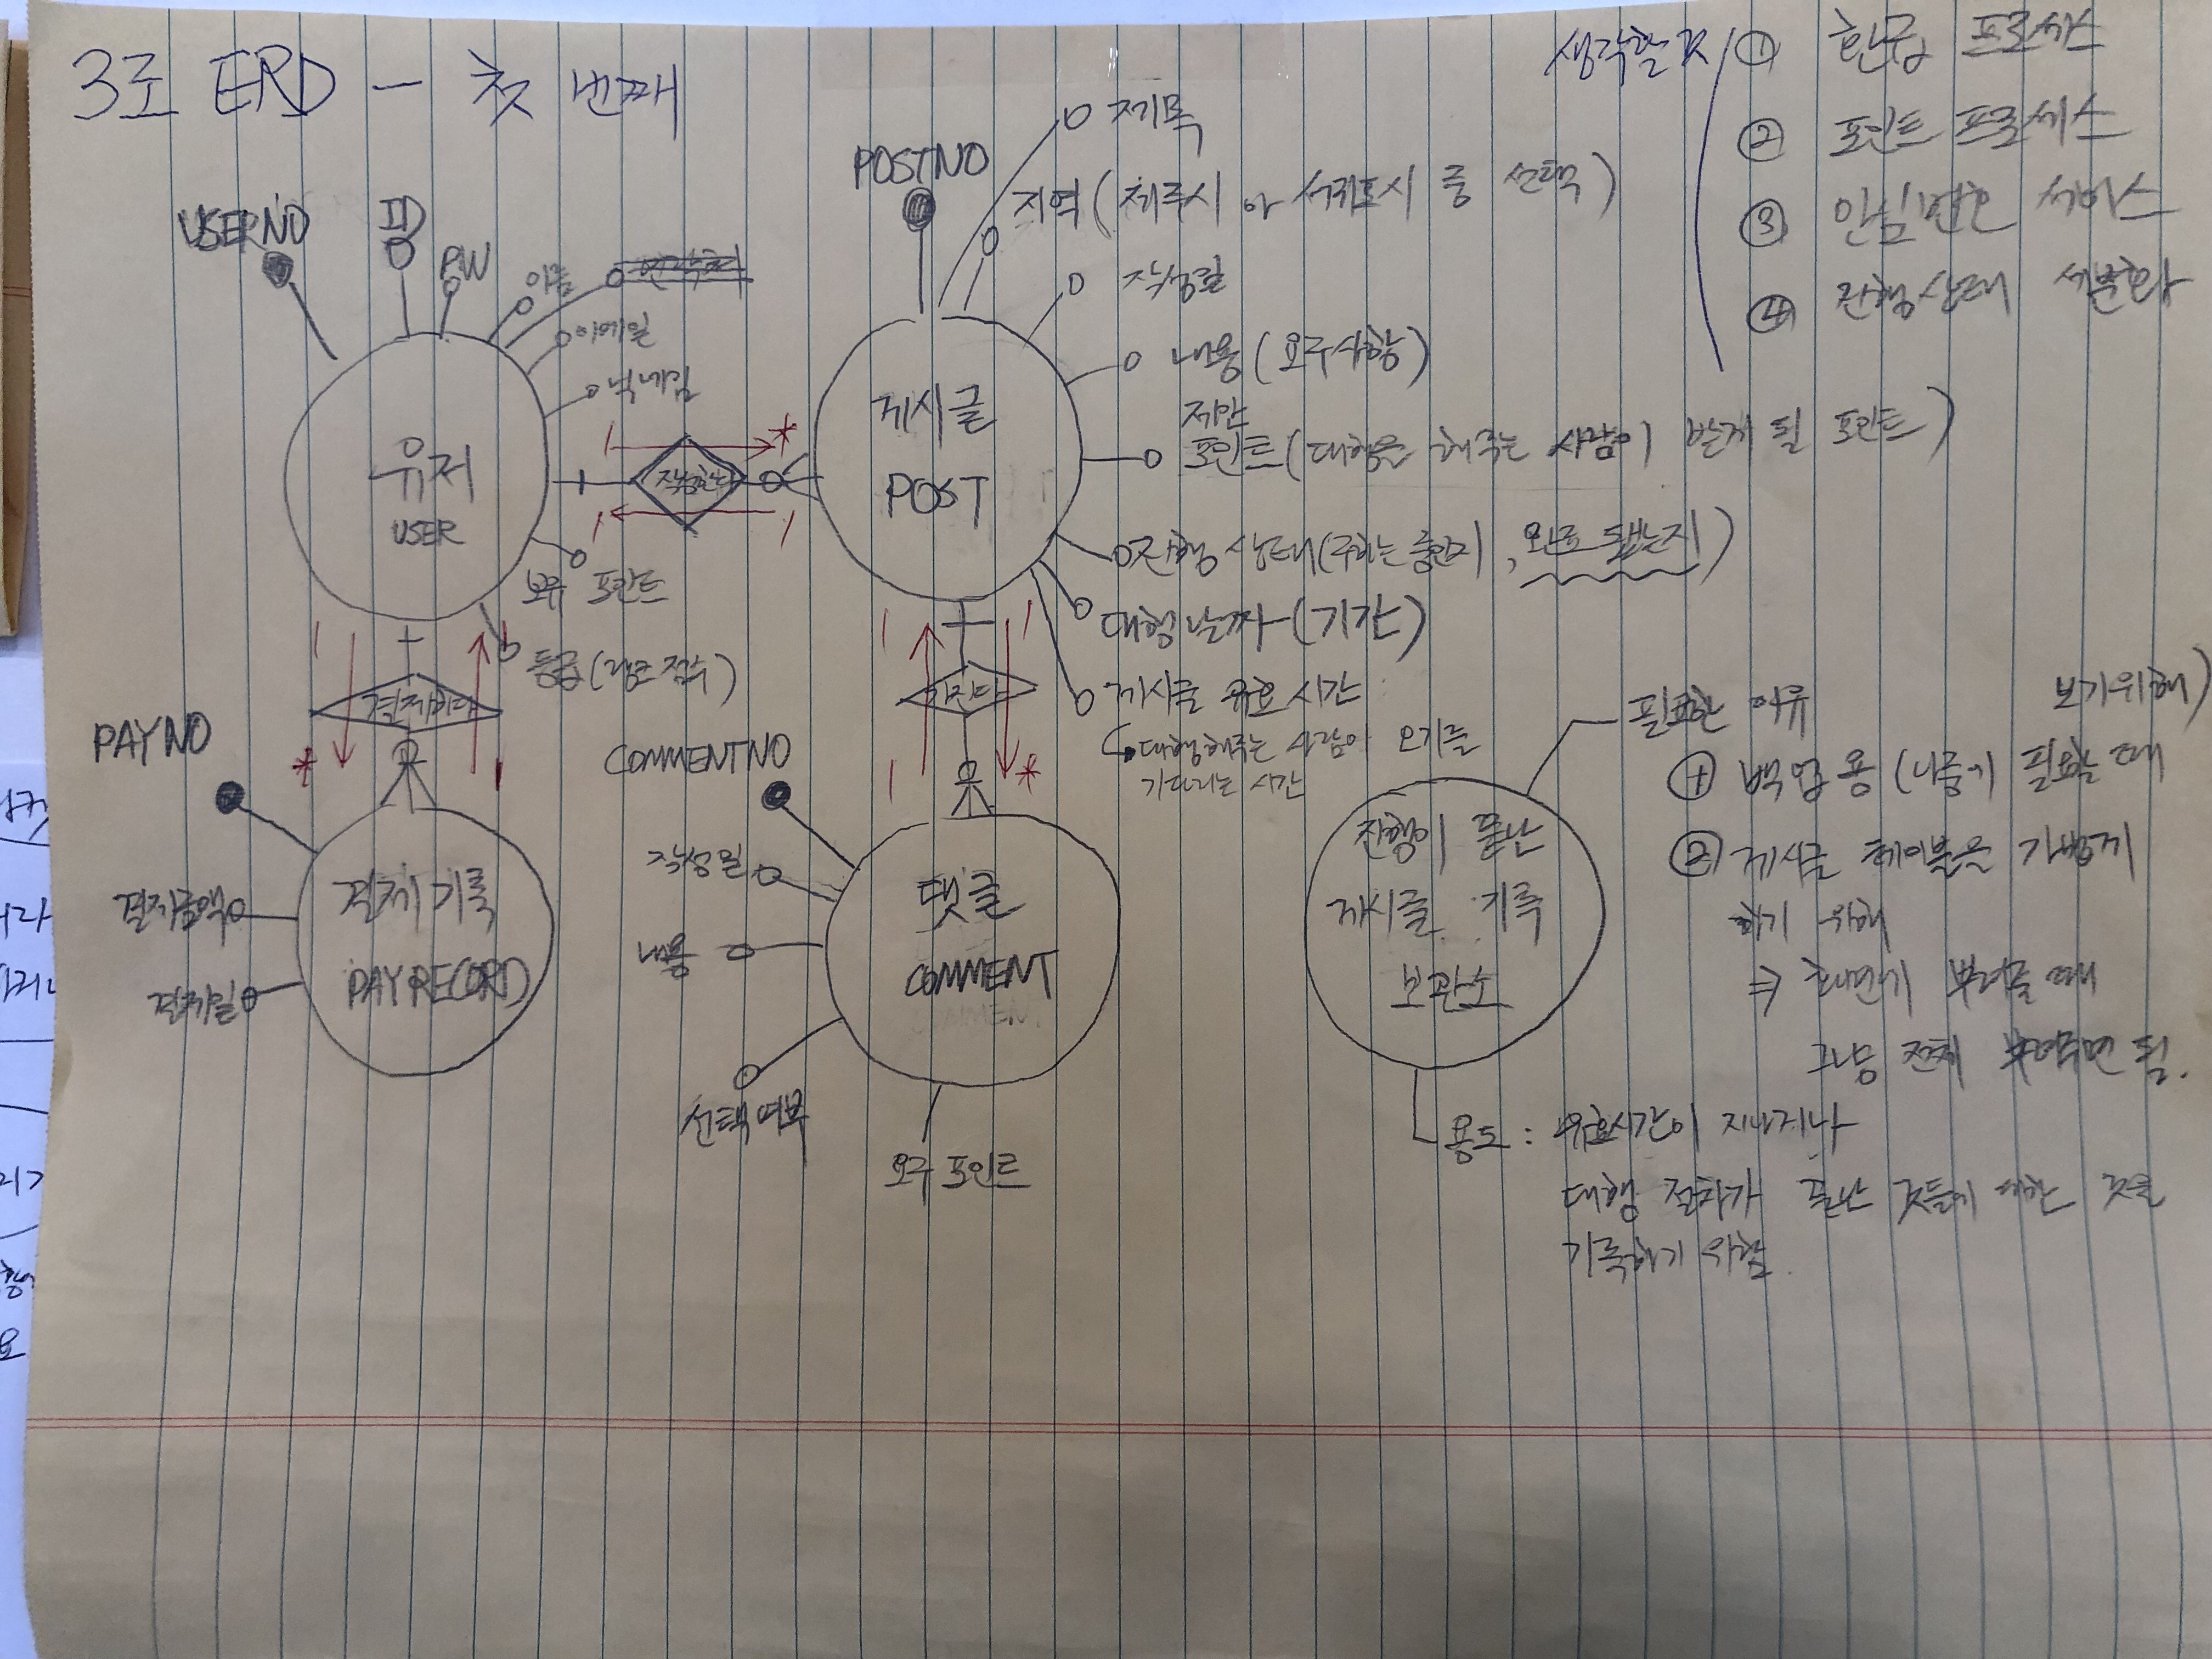 3조 ERD - 첫 번째
생각할 것
① 환급 프로세스
② 포인트 프로세스
③ 안심번호 서비스
④ 진행상태 세분화
USERNO
ID
PW
이름
이메일
닉네임
유저
USER
보유 포인트
등급(랭크 점수)
1
*
작성한다
1
1
POSTNO
제목
지역(제주시 or 서귀포시 중 선택)
작성일
내용(요구사항)
제안
포인트(대행을 해주는 사람이 받게 될 포인트)
진행상태(구하는 중인지, 완료 됐는지)
대행날짜(기간)
게시글 유효시간
↳ 대행해주는 사람이 오기를
기다리는 시간
게시글
POST
1
1
결제하다
*
1
1
1
가진다
1
*
PAYNO
결제금액
결제일
결제기록
PAYRECORD
COMMENTNO
작성일
내용
선택여부
요구 포인트
댓글
COMMENT
진행이 끝난
게시글 기록
보관소
필요한 이유
① 백업용(나중에 필요할 때
보기위해)
② 게시글 테이블을 가볍게
하기 위해
⇒ 화면에 뿌려줄 때
그냥 전체 뿌려주면 됨.
용도 : 유효시간이 지나거나
대행 절차가 끝난 것들에 대한 것을
기록하기 위함.